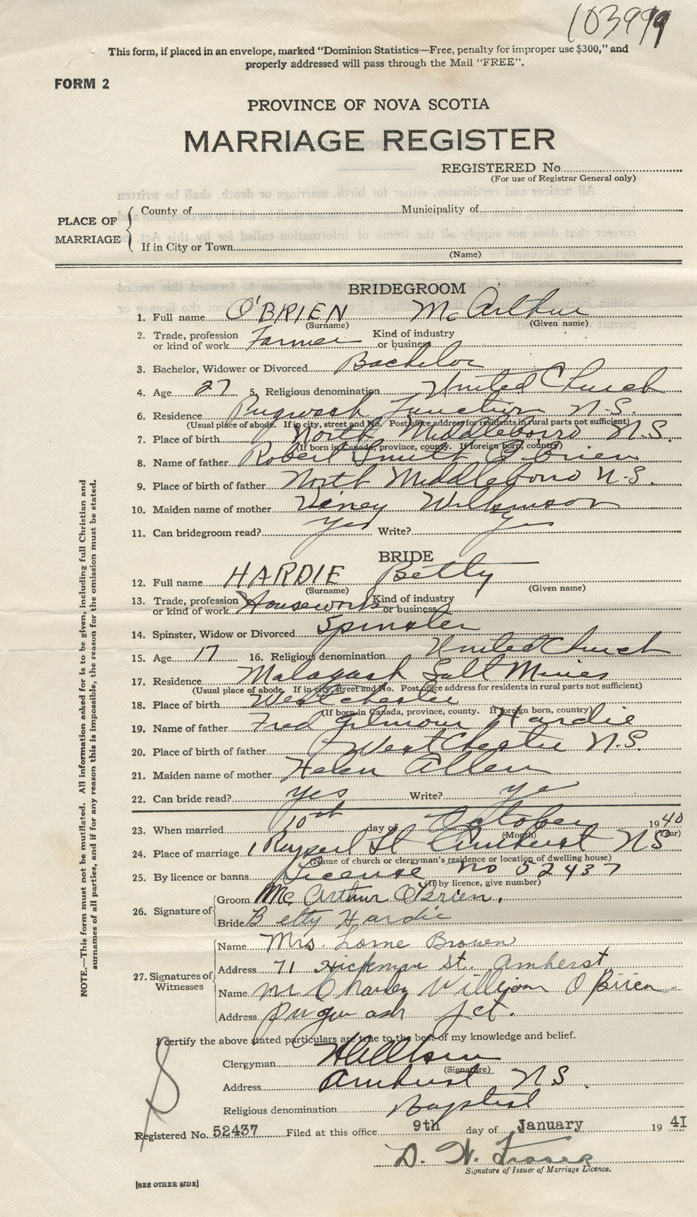 10399
This form, if placed in an envelope, marked "Dominion Statistics—Free, penalty for improper use $300," and
properly addressed will pass through the Mail "FREE".
FORM 2
PROVINCE OF NOVA SCOTIA
MARRIAGE REGISTER
REGISTERED No.
(For use of Registrar General only)
PLACE OF MARRIAGE
County of Municipality of
If in City or Town
(Name)
BRIDEGROOM
1. Full name O'BRIEN McArthur
(Surname) (Given name)
2. Trade, profession or kind of work Farmer Kind of industry or business
3. Bachelor, Widower or Divorced Bachelor
4. Age 27 5. Religious denomination United Church
6. Residence Pugwash Junction N.S.
(Usual place of abode. If in city, street and No. Post office address for residents in rural parts not sufficient)
7. Place of birth North Middleboro N.S.
(If born in Canada, province, county. If foreign born, country)
8. Name of father Robert Smith O'Brien
9. Place of birth of father North Middleboro N.S.
10. Maiden name of mother Wilkinson
11. Can bridegroom read? yes Write? yes
BRIDE
12. Full name HARDIE Betty
(Surname) (Given name)
13. Trade, profession or kind of work Housework Kind of industry or business
14. Spinster, Widow or Divorced Spinster
15. Age 17 16. Religious denomination United Church
17. Residence Malagash Salt Mines
(Usual place of abode. If in city, street and No. Post office address for residents in rural parts not sufficient)
18. Place of birth Westchester
(If born in Canada, province, county. If foreign born, country)
19. Name of father Fred Gilmour Hardie
20. Place of birth of father Westchester N.S.
21. Maiden name of mother Helen Allen
22. Can bride read? yes Write? yes
23. When married 10th day of October 1940
(Month) (Year)
24. Place of marriage 1 Rupert St Amherst NS
(Name of church or clergyman's residence or location of dwelling house)
25. By licence or banns License No 52437
(If by licence, give number)
26. Signature of
Groom McArthur O'Brien.
Bride Betty Hardie
27. Signatures of Witnesses
Name Mrs. Lorne Brown
Address 71 Hickman St. Amherst
Name Mr Charley Willyom O'Brien
Address Pugwash Jct.
I certify the above stated particulars are true to the best of my knowledge and belief.
Clergyman
(Signature)
Address Amherst N.S.
Religious denomination Baptist
Registered No. 52437 Filed at this office 9th day of January 1941
D. H. Fraser
Signature of Issuer of Marriage Licence.
[SEE OTHER SIDE]
NOTE.—This form must not be mutilated. All information asked for is to be given, including full Christian and
surnames of all parties, and if for any reason this is impossible, the reason for the omission must be stated.